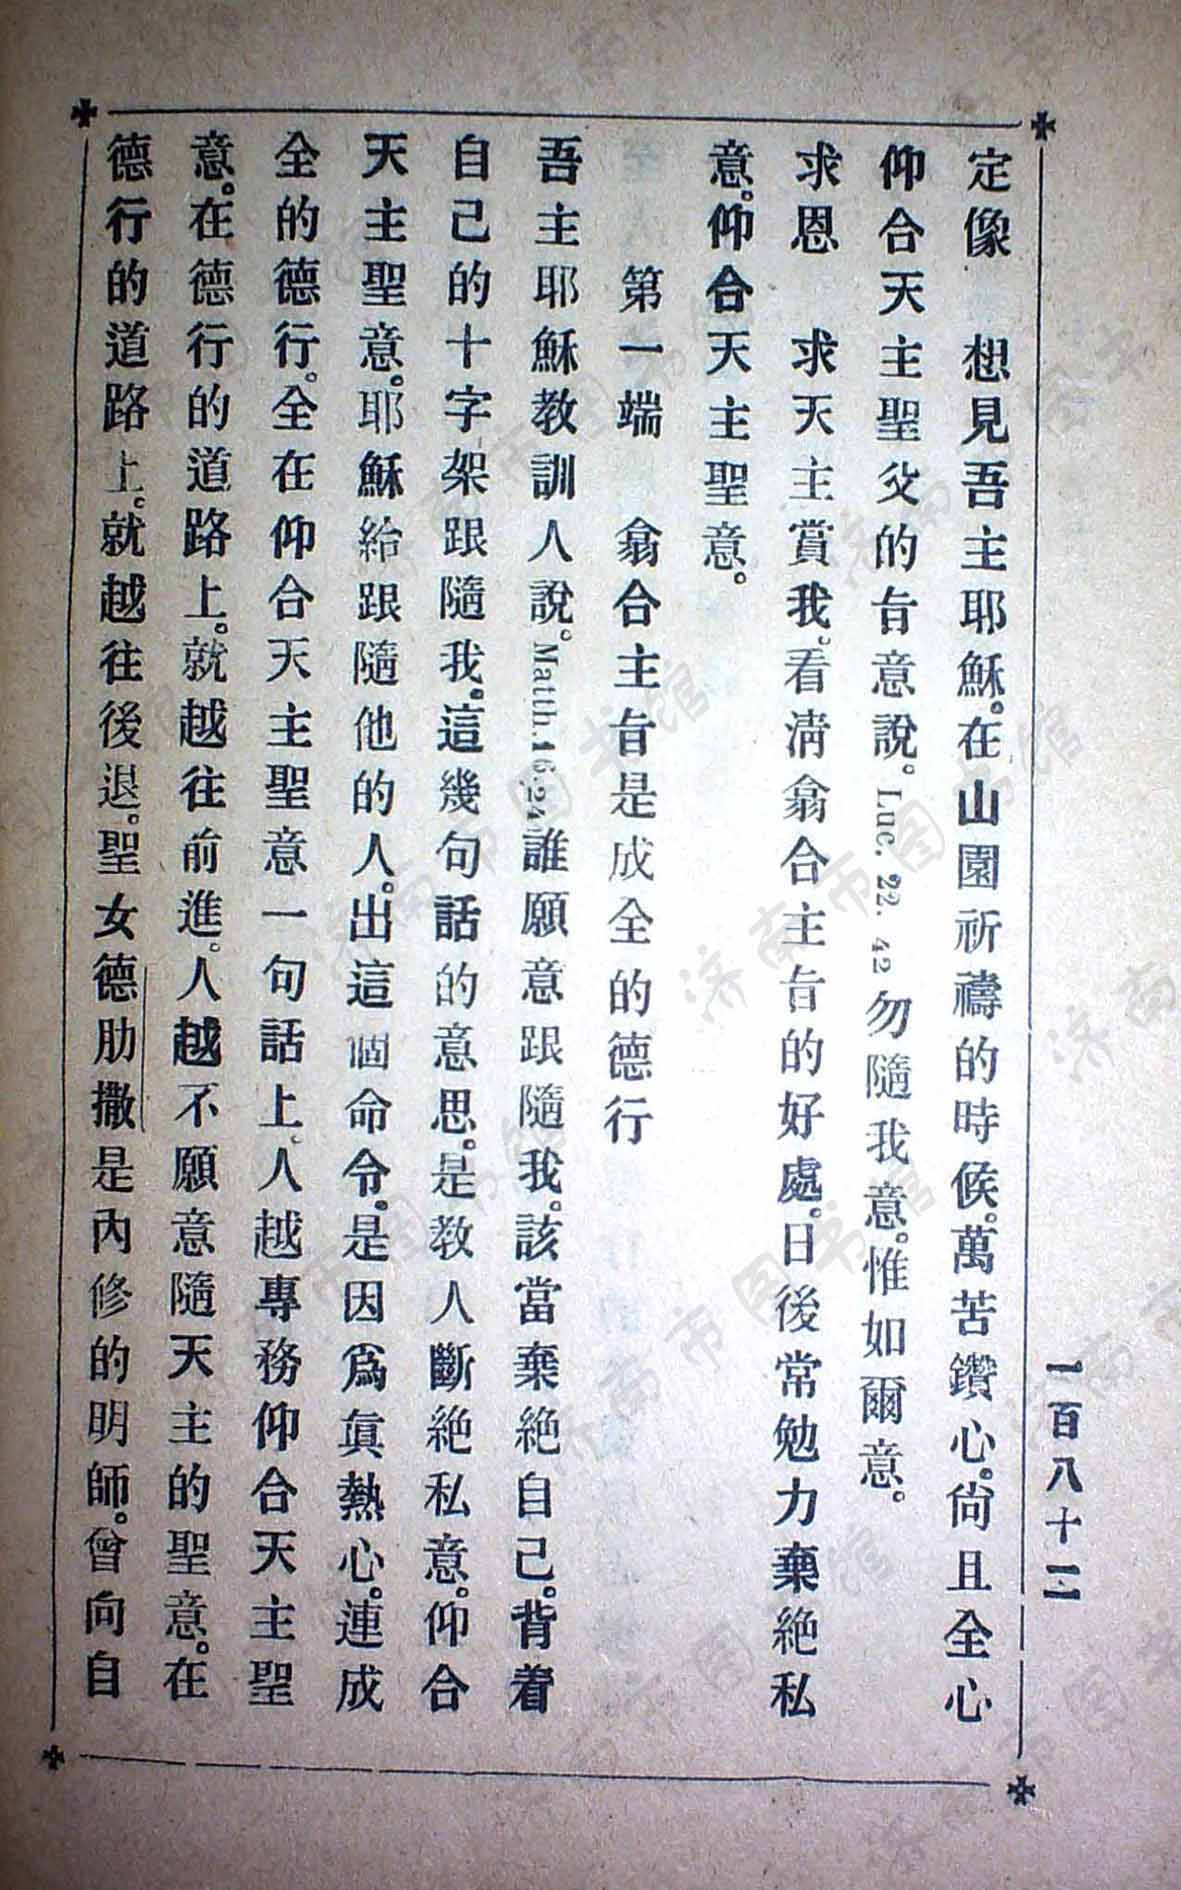 一百八十二
定像　想見吾主耶穌。在山園祈禱的時候。萬苦鑽心。尙且全心
仰合天主聖父的旨意說。Luc. 22. 42 勿隨我意。惟如爾意。
求恩　求天主賞我。看淸翕合主旨的好處。日後常勉力棄絕私
意。仰合天主聖意。
第一端　翕合主旨是成全的德行
吾主耶穌教訓人說。Matth. 16. 24. 誰願意跟隨我。該當棄絕自己。背着
自己的十字架跟隨我。這幾句話的意思。是教人斷絕私意。仰合
天主聖意。耶穌給跟隨他的人。出這個命令。是因爲眞熱心。連成
全的德行。全在仰合天主聖意一句話上。人越專務仰合天主聖
意。在德行的道路上。就越往前進。人越不願意隨天主的聖意。在
德行的道路上。就越往後退。聖女德肋撒是內修的明師。曾向自
济南市图书馆